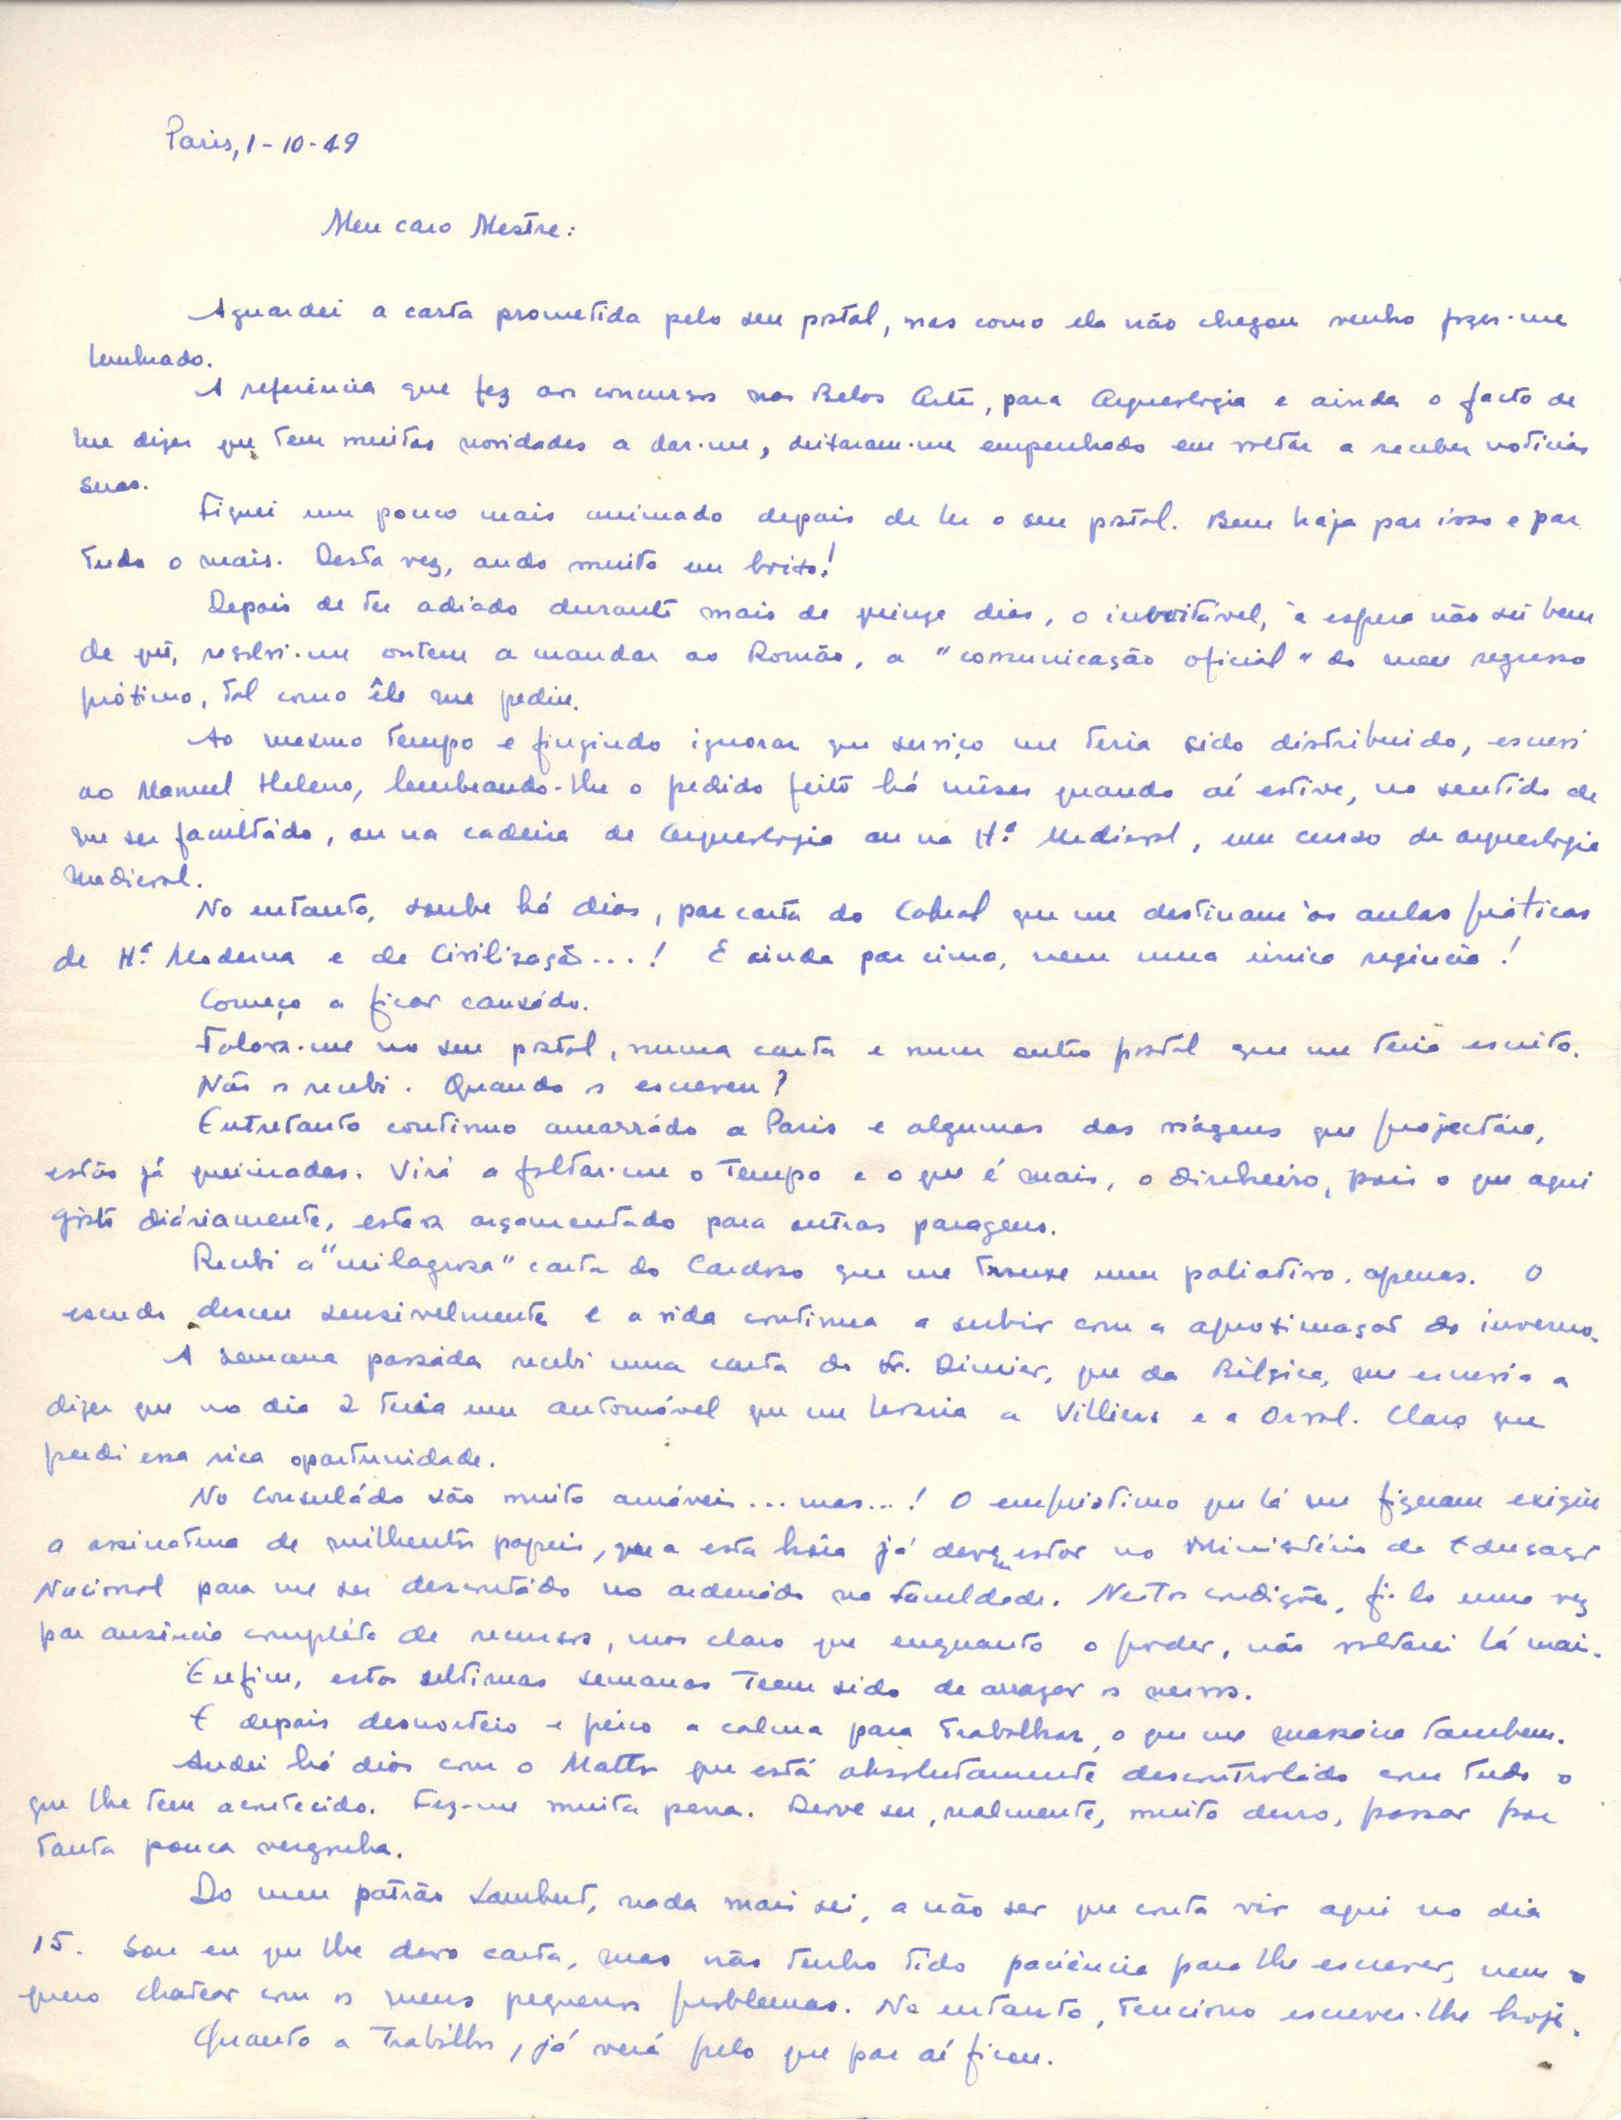 Paris, 1-10-49
Meu caro Mestre:
Aguardei a carta prometida pelo seu postal, mas como ela não chegou venho fazer-me
lembrado.
A referência que fez aos concursos nas Belas Artes, para Arqueologia e ainda o facto de
me dizer que tem muitas novidades a dar-me, deixaram-me empenhado em voltar a receber notícias
suas.
Fiquei um pouco mais animado depois de ler o seu postal. Bem haja por isso e por
tudo o mais. Desta vez, ando muito em baixo!
Depois de ter adiado durante mais de quinze dias, o inevitável, à espera não sei bem
de quê, resolvi-me ontem a mandar ao Romão, a "comunicação oficial" do meu regresso
próximo, tal como êle me pediu.
Ao mesmo tempo e fingindo ignorar que serviço me teria sido distribuido, escrevi
ao Manuel Heleno, lembrando-lhe o pedido feito há mêses quando aí estive, no sentido de
me ser facultádo, ou na cadeira de Arqueologia ou na Hª Medieval, um curso de arqueologia
medieval.
No entanto, soube há dias, por carta do Cabral que me destinam às aulas práticas
de Hª Moderna e de Civilização...! E ainda por cima, nem uma única regência!
Começo a ficar cansádo.
Falava-me no seu postal, numa carta e num outro postal que me teria escrito.
Não os recebi. Quando os escreveu?
Entretanto continuo amarrádo a Paris e algumas das viágens que projectára,
estão já queimadas. Virá a faltar-me o tempo e o que é mais, o dinheiro, pois o que aqui
gasto diáriamente, estava orçamentado para outras paragens.
Recebi a "milagrosa" carta do Cardoso que me trouxe um paliativo, apenas. O
escudo desceu sensivelmente e a vida continua a subir com a aproximação do inverno.
A semana passáda recebi uma carta do Sr. Dimier, que da Bélgica, me escrevia a
dizer que no dia 2 teria um automóvel que me levaria a Villiers e a Orval. Claro que
perdi essa rica oportunidade.
No Consuládo são muito amáveis... mas...! O empréstimo que lá me fizeram exigiu
a assinatura de milhentos papeis, que a esta hora já devem estar no Ministério da Educação
Nacional para me ser descontádo no ordenádo na Faculdade. Nestas condições, fi-lo uma vez
por ausência compléta de recursos, mas claro que enquanto o poder, não voltarei lá mais.
Enfim, estas ultimas semanas teem sido de arrazar os nervos.
E depois desnorteio e perco a calma para trabalhar, o que me massára tambem.
Andei há dias com o Mattos que está absolutamente descontroládo com tudo o
que lhe tem acontecido. Fez-me muita pena. Deve ser, realmente, muito duro, passar por
tanta pouca vergonha.
Do meu patrão Lambert, nada mais sei, a não ser que conta vir aqui no dia
15. Sou eu que lhe devo carta, mas não tenho tido paciência para lhe escrever, nem o
quero chatear com os meus pequenos problemas. No entanto, tenciono escrever-lhe hoje.
Quanto a trabalhos, já verá pelo que por aí ficou.